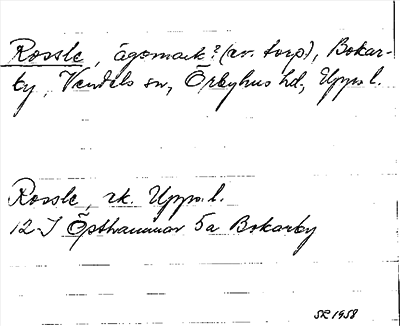 Rossle, ägomark? (ev. torp), Bokar-
by, Vendels sn, Örbyhus hd, Upps. l.
Rossle, rk. Upps. l.
12 I Östhammar 5a Bokarby
SL 1958